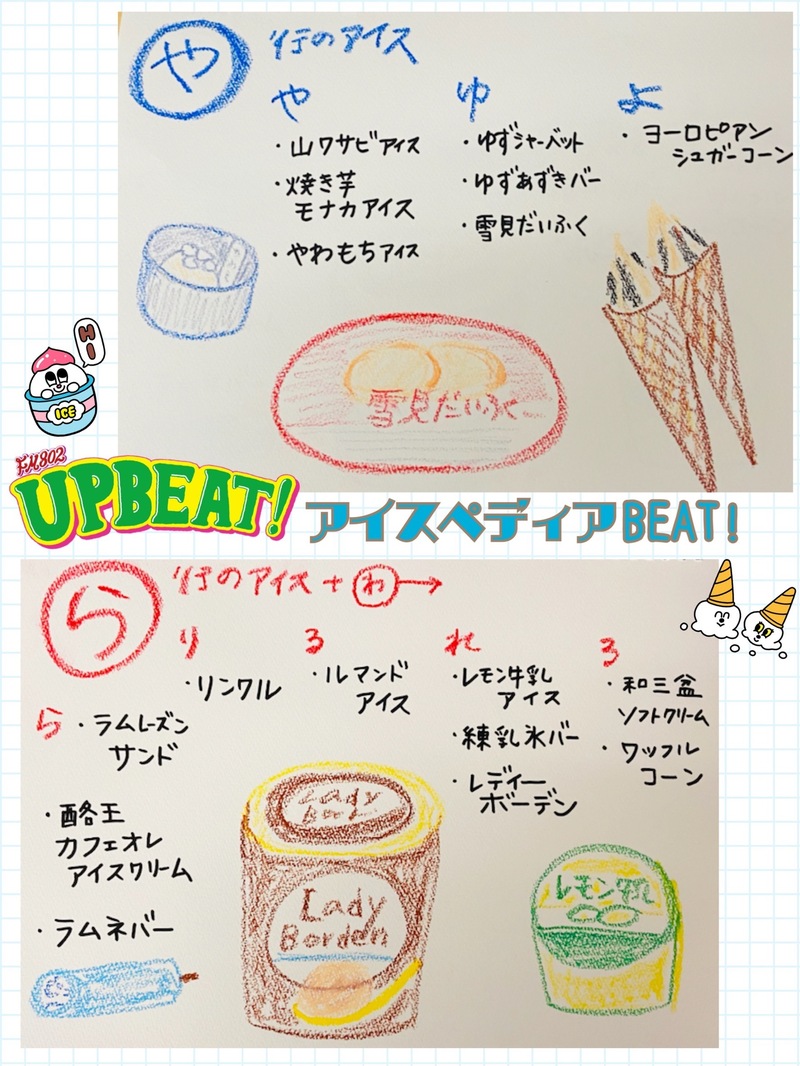 や 行のアイス
や ゆ よ
・山ワサビアイス
・焼き芋
モナカアイス
・やわもちアイス
・ゆずシャーベット
・ゆずあずきバー
・雪見だいふく
・ヨーロピアン
シュガーコーン
雪見だいふく
HI
ICE
FM802
UPBEAT!
アイスペディアBEAT!
ら 行のアイス+わ→
ら
・ラムレーズン
サンド
・酪王
カフェオレ
アイスクリーム
・ラムネバー
り
・リンクル
る
・ルマンド
アイス
れ
・レモン牛乳
アイス
・練乳氷バー
・レディー
ボーデン
ろ
・和三盆
ソフトクリーム
・ワッフル
コーン
Lady
Lady
Borden
レモン牛乳